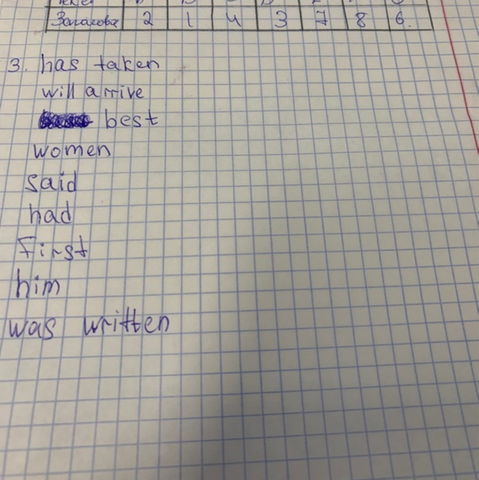 Заголовок 2 1 4 3 7 8 6.
3. has taken
will arrive
best
women
said
had
First
him
was written